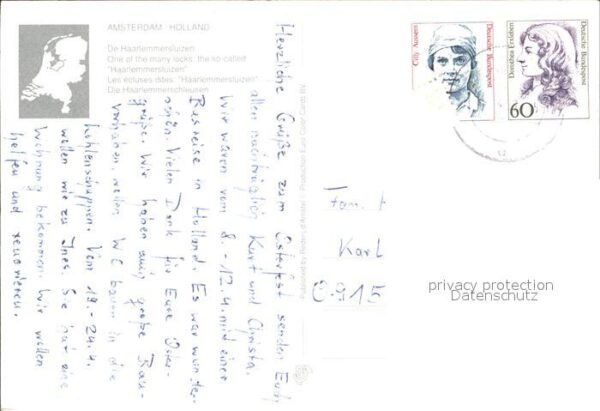 AMSTERDAM - HOLLAND
De Haarlemmersluizen
One of the many locks, the so called
"Haarlemmersluizen"
Les écluses dites "Haarlemmersluizen"
Die Haarlemmerschleusen
Herzliche Grüße zum Osterfest senden Euch
allen nachträglich Kurt und Christa.
Wir waren vom 8. - 12.4. mit einer
Busreise in Holland. Es war wunder-
schön. Vielen Dank für Eure Oster-
grüße. Wir haben auch große
Vorhaben, wollen WC bauen in die
Vom 19. - 24.4.
wollen wir zu Ines. Sie hat eine
Wohnung bekommen. Wir wollen
helfen und renovieren.
Fam.
Karl
O-915
Cilly Aussem
Deutsche Bundespost
Dorothea Erxleben
Deutsche Bundespost
60
privacy protection
Datenschutz